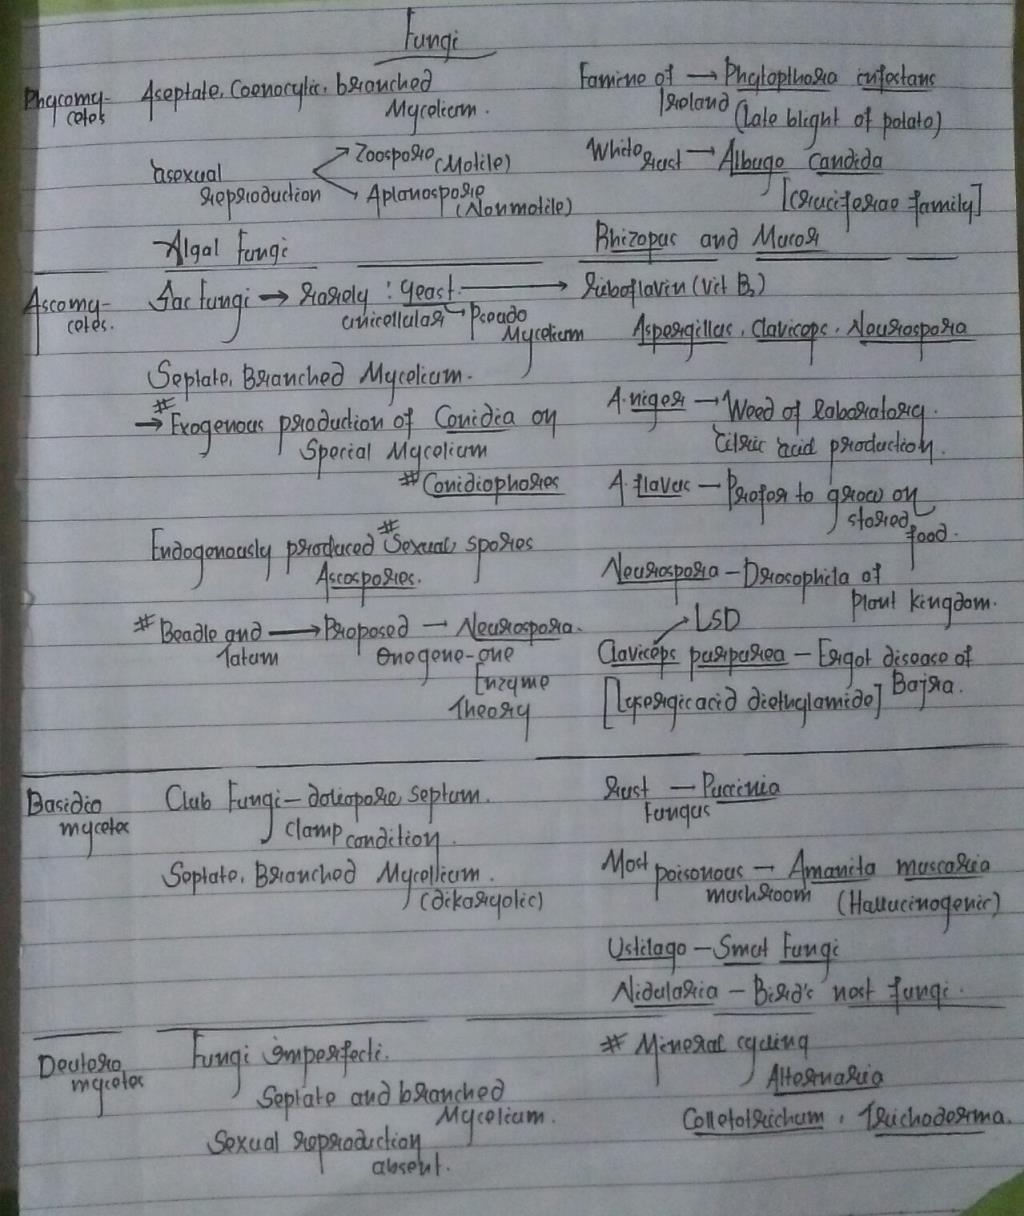 Fungi
Phycomy-
cetes
Aseptate, Coenocytic, branched
Mycelium.
asexual
reproduction
Zoospore (Motile)
Aplanospore
(Nonmotile)
Algal Fungi
Famine of → Phytopthora infestans
Ireland (Late blight of potato)
White rust → Albugo Candida
[Cruciferae family]
Rhizopus and Mucor
Ascomy-
cetes.
Sac Fungi → rarely : yeast → Riboflavin (Vit B2)
unicellular → Pseudo
Mycelium
Septate, Branched Mycelium.
#
→ Exogenous production of Conidia on
Special Mycelium
# Conidiophores
Endogenously produced # Sexual spores
Ascospores.
# Beadle and → Proposed – Neurospora.
Tatum One gene-one
Enzyme
Theory
Aspergillus, Claviceps, Neurospora
A. niger → Weed of laboratory.
Citric acid production.
A. flavus – Prefer to grow on
stored
food.
Neurospora – Drosophila of
Plant kingdom.
LSD
Claviceps purpurea – Ergot disease of
Bajra.
[Lysergic acid diethylamide]
Basidio
mycetes
Club Fungi – doliopore, Septum.
Clamp condition.
Septate, Branched Mycellium.
(dikaryotic)
Rust – Puccinia
Fungus
Most poisonous → Amanita muscaria
mushroom (Hallucinogenic)
Ustilago – Smut Fungi
Nidularia – Bird's nest fungi.
Deutero
mycetes
Fungi imperfecti.
Septate and branched
Mycelium.
Sexual reproduction
absent.
# Mineral cycling
Alternaria
Colletotrichum, Trichoderma.